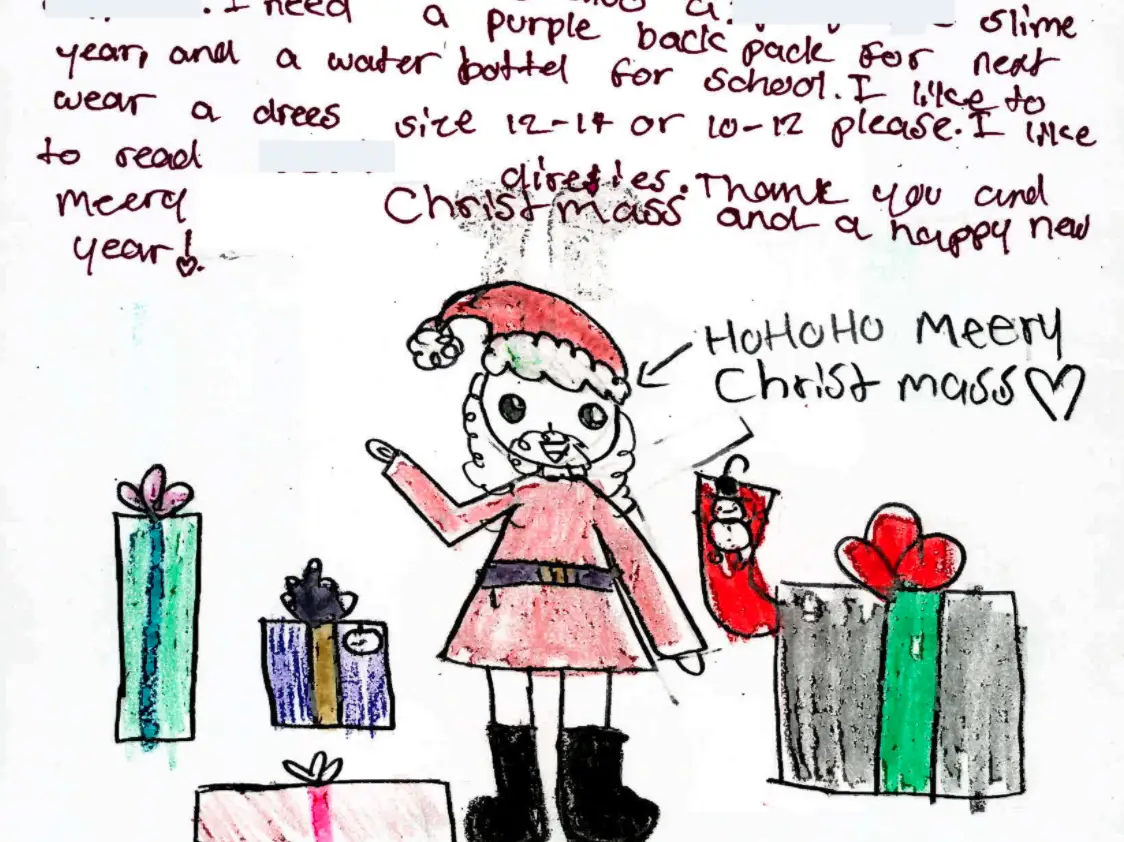 slime
. I need a purple back pack for next
year, and a water bottel for school. I like to
wear a drees size 12-14 or 10-12 please. I like
to read
Thank you and
meery Christ mass and a happy new
year!
HoHoHo Meery
Christ mass